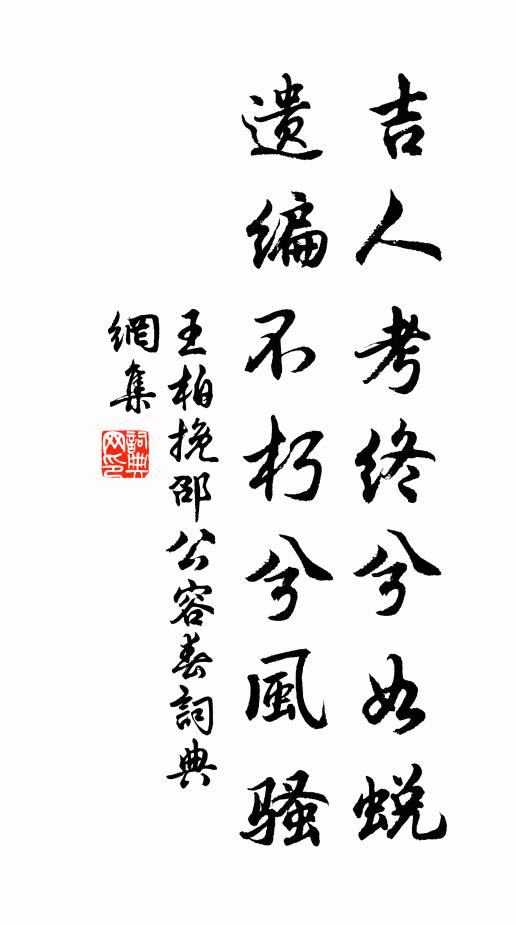 吉人考終兮如蛻
遺編不朽兮風騷
王柏挽邵公容春詞典
網集
詞典網印